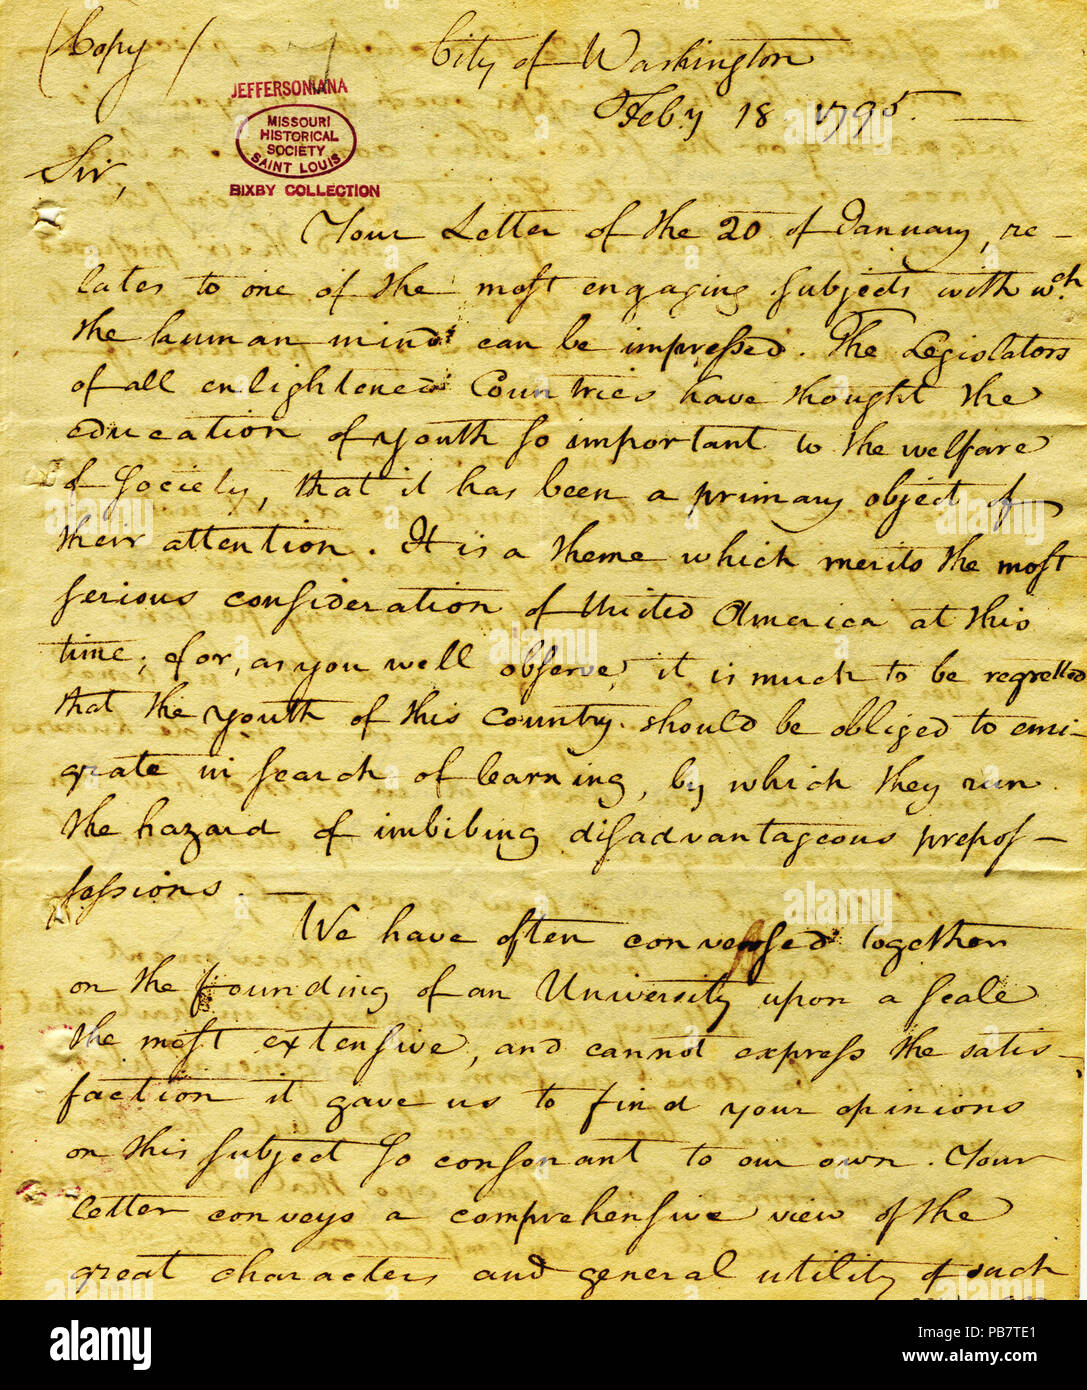 (Copy)
City of Washington
Feby 18 1795. —
JEFFERSONIANA
MISSOURI
HISTORICAL
SOCIETY
SAINT LOUIS
BIXBY COLLECTION
Sir,
Your Letter of the 20 of January, re-
lates to one of the most engaging subjects with wch
the human mind can be impressed. The Legislators
of all enlightened Countries have thought the
education of youth so important to the welfare
of Society, that it has been a primary object of
their attention. It is a theme which merits the most
serious consideration of United America at this
time; for, as you well observe, it is much to be regretted
that the youth of this country should be obliged to emi-
grate in search of learning, by which they run
the hazard of imbibing disadvantageous prepos-
sessions. —
We have often conversed together
on the founding of an University upon a scale
the most extensive, and cannot express the satis-
faction it gave us to find your opinions
on this subject so consonant to our own. Your
letter conveys a comprehensive view of the
great characters and general utility of such
alamy
Image ID: PB7TE1
www.alamy.com